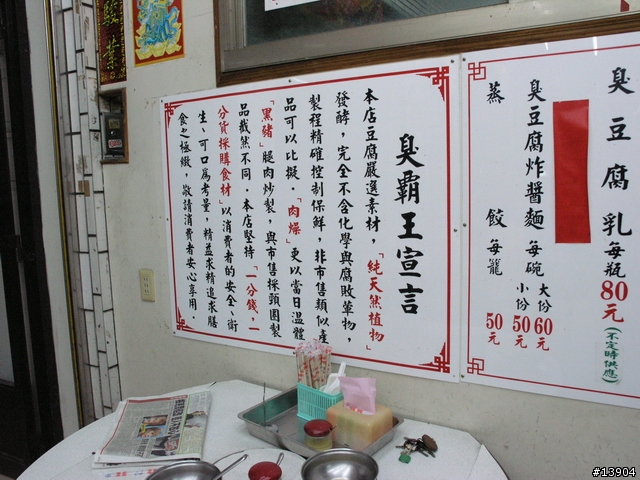 臭霸王宣言
本店豆腐嚴選素材，「純天然植物」
發酵，完全不含化學與腐敗軍物，
製程精確控制保鮮，非市售類似產
品可以比擬．「肉燥」更以當日溫體
「黑豬」腿肉炒製，與市售採頸圈製
品截然不同．本店堅持「一分錢，一
分貨採購食材」以消費者的安全、衛
生、可口為考量，精益求精追求膳
食之極緻，敬請消費者安心享用．
臭豆腐乳 每瓶80元(不定時供應)
臭豆腐炸醬麵 每碗 大份60元 小份50元
蒸餃 每籠 50元
#13904